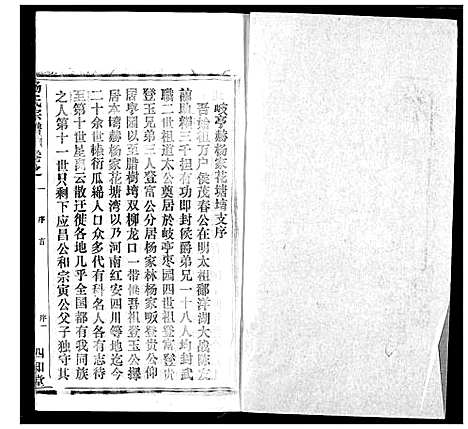 岐亭赫杨家花塘塆支序
吾始祖万户侯茂春公在明太祖鄱洋湖大战陈友
諒助粮三千担有功即封侯爵弟兄一十八人均封武
職二世祖道太公奠居於岐亭枣园四世祖登玉公
登玉兄弟三人登富公分居杨家林杨家畈登贵公仰
居亭园以至腊树塆双柳龙口一带惟吾祖登玉公择
居本塆赫杨家花塘湾以乃河南红安四川等地迄今
二十余世椒衍瓜綿人口众多代有科名人各有志待
至第十世星罗云散迁徙各地几乎全国都有我同族
之人第十一世只剩下应昌公和宗寅公父子独守其
杨氏宗譜 卷之一 序言 序一 四知堂